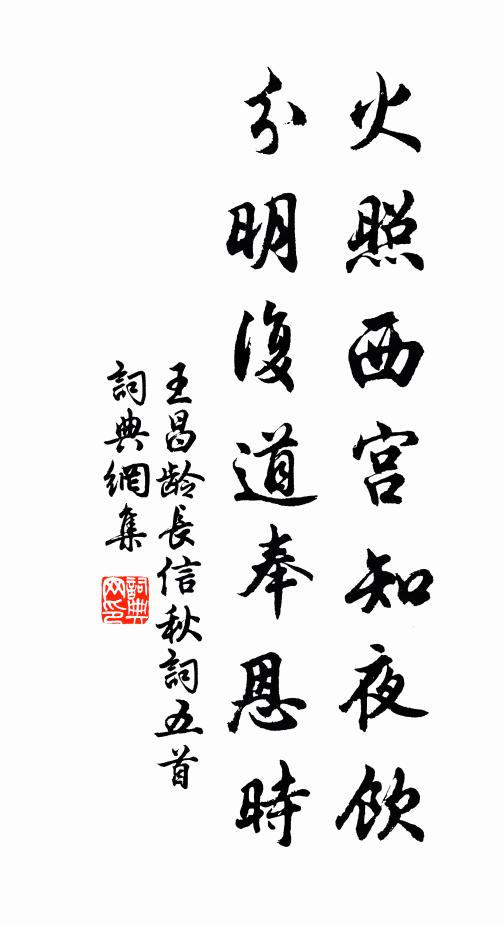 火照西宫知夜饮
分明復道奉恩時
王昌龄長信秋詞五首
詞典網集
詞典網印